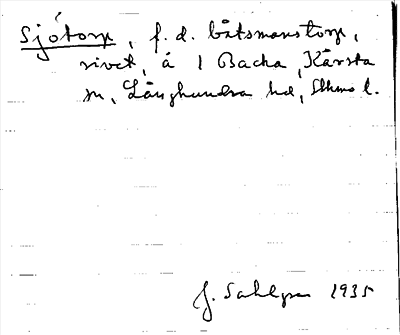 Sjötorp, f.d. båtsmanstorp,
rivet, å 1 Backa, Kårsta
sn, Långhundra hd, Sthms l.
J. Sahlgren 1935